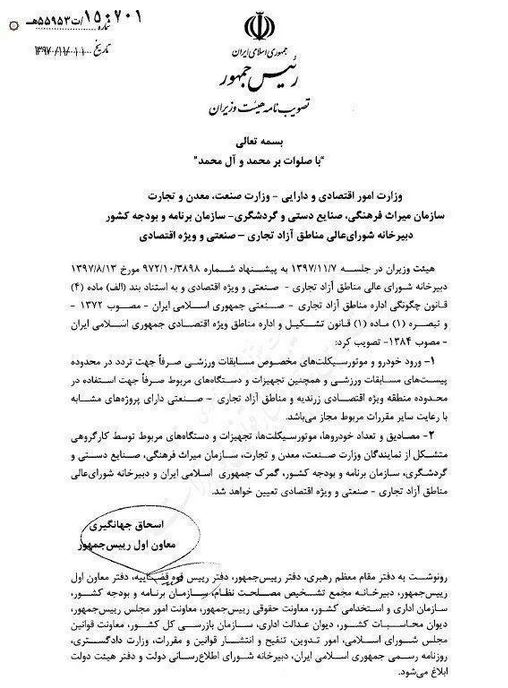 شماره ۱۵۰۷۰۱/ت۵۵۹۵۳هـ
تاریخ ۱۳۹۷/۱۱/۱۰
جمهوری اسلامی ایران
رئیس جمهور
تصویب نامه هیئت وزیران
بسمه تعالی
"با صلوات بر محمد و آل محمد"
وزارت امور اقتصادی و دارایی - وزارت صنعت، معدن و تجارت
سازمان میراث فرهنگی، صنایع دستی و گردشگری- سازمان برنامه و بودجه کشور
دبیرخانه شورای‌عالی مناطق آزاد تجاری – صنعتی و ویژه اقتصادی
هیئت وزیران در جلسه ۱۳۹۷/۱۱/۷ به پیشنهاد شماره ۹۷۲/۱۰/۳۸۹۸ مورخ ۱۳۹۷/۸/۱۳
دبیرخانه شورای عالی مناطق آزاد تجاری - صنعتی و ویژه اقتصادی و به استناد بند (الف) ماده (۴)
قانون چگونگی اداره مناطق آزاد تجاری - صنعتی جمهوری اسلامی ایران - مصوب ۱۳۷۲ -
و تبصره (۱) ماده (۱) قانون تشکیل و اداره مناطق ویژه اقتصادی جمهوری اسلامی ایران
- مصوب ۱۳۸۴- تصویب کرد:
۱- ورود خودرو و موتورسیکلت‌های مخصوص مسابقات ورزشی صرفاً جهت تردد در محدوده
پیست‌های مسابقات ورزشی و همچنین تجهیزات و دستگاه‌های مربوط صرفاً جهت استفاده در
محدوده منطقه ویژه اقتصادی زرندیه و مناطق آزاد تجاری - صنعتی دارای پروژه‌های مشابه
با رعایت سایر مقررات مربوط مجاز می‌باشد.
۲- مصادیق و تعداد خودروها، موتورسیکلت‌ها، تجهیزات و دستگاه‌های مربوط توسط کارگروهی
متشکل از نمایندگان وزارت صنعت، معدن و تجارت، سازمان میراث فرهنگی، صنایع دستی و
گردشگری، سازمان برنامه و بودجه کشور، گمرک جمهوری اسلامی ایران و دبیرخانه شورای‌عالی
مناطق آزاد تجاری - صنعتی و ویژه اقتصادی تعیین خواهد شد.
اسحاق جهانگیری
معاون اول رییس‌جمهور
رونوشت به دفتر مقام معظم رهبری، دفتر رییس‌جمهور، دفتر رییس قوه قضاییه، دفتر معاون اول
رییس‌جمهور، دبیرخانه مجمع تشخیص مصلحت نظام، سازمان برنامه و بودجه کشور،
سازمان اداری و استخدامی کشور، معاونت حقوقی رییس‌جمهور، معاونت امور مجلس رییس‌جمهور،
دیوان محاسبات کشور، دیوان عدالت اداری، سازمان بازرسی کل کشور، معاونت قوانین
مجلس شورای اسلامی، امور تدوین، تنقیح و انتشار قوانین و مقررات، وزارت دادگستری،
روزنامه رسمی جمهوری اسلامی ایران، دبیرخانه شورای اطلاع‌رسانی دولت و دفتر هیئت دولت
ابلاغ می‌شود.